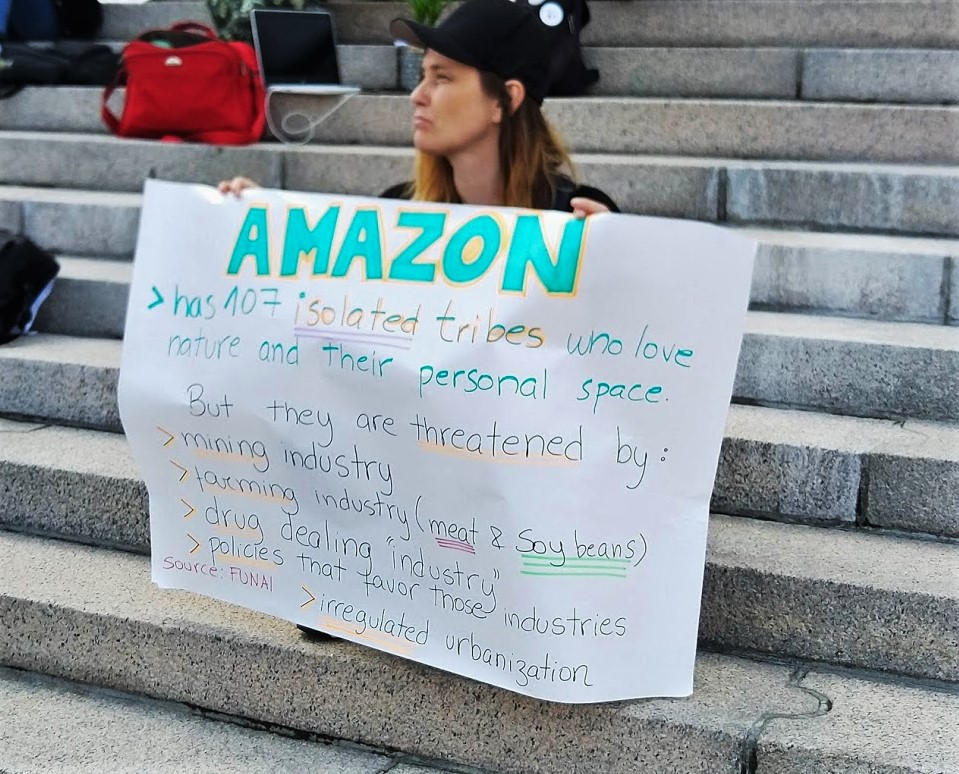 AMAZON
> has 107 isolated tribes who love
nature and their personal space.
But they are threatened by:
> mining industry
> farming industry (meat & Soy beans)
> drug dealing "industry"
> policies that favor those industries
Source: FUNAI
> irregulated urbanization